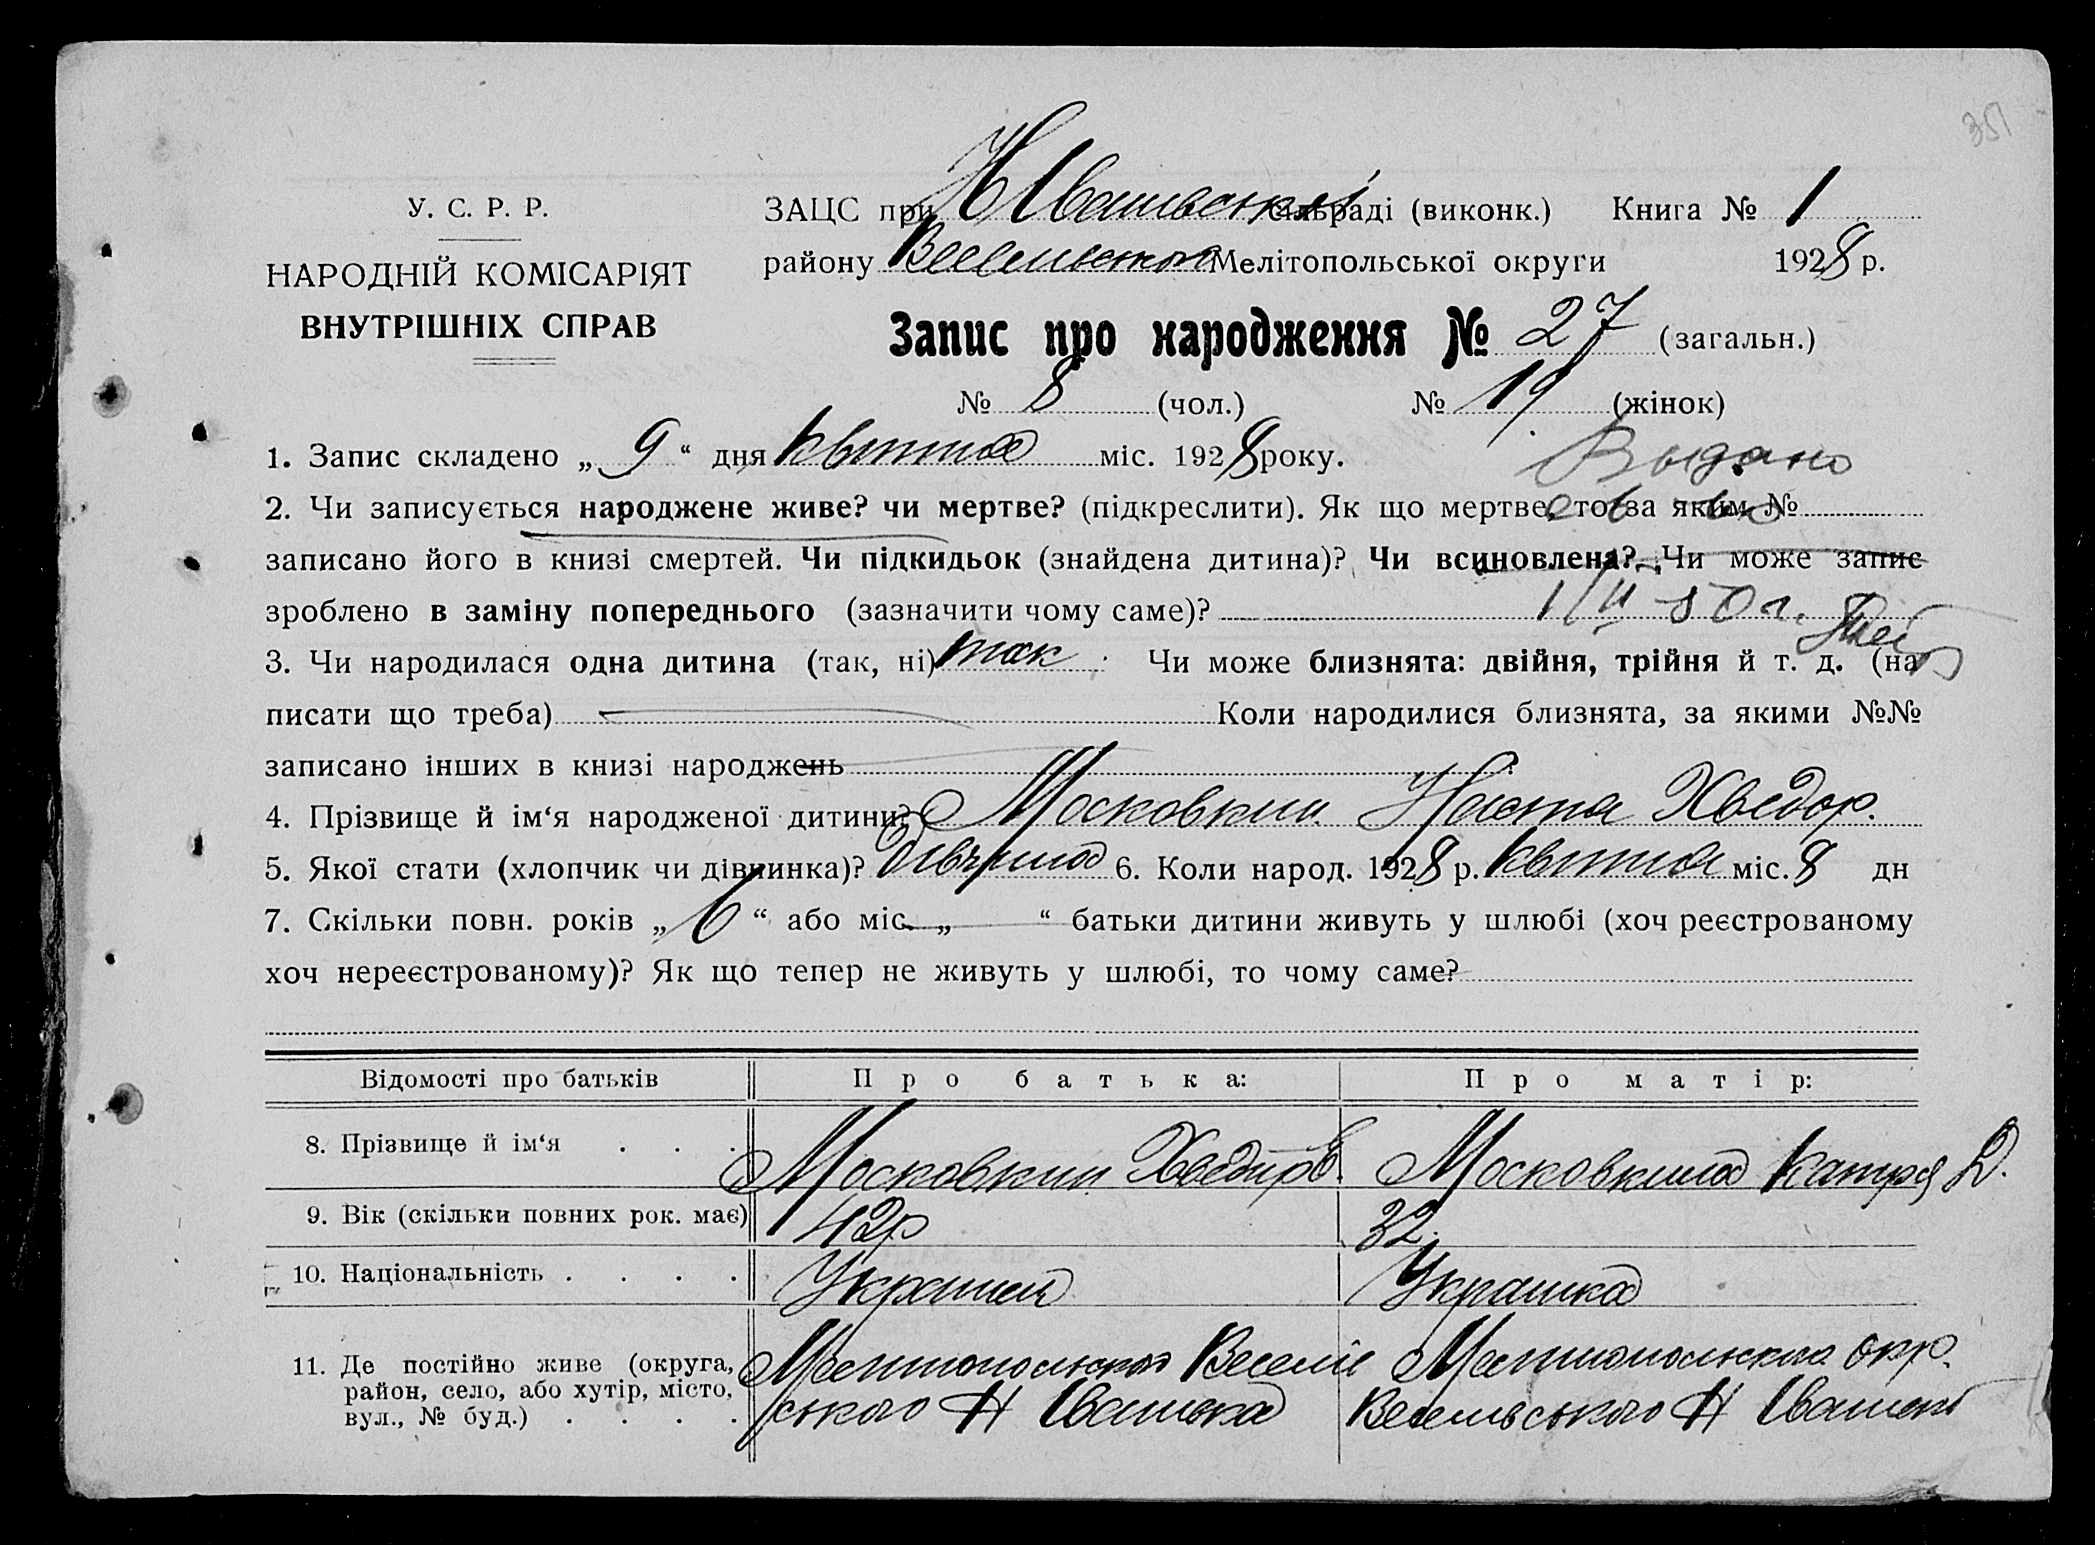 351
У. С. Р. Р.
НАРОДНІЙ КОМІСАРІЯТ
ВНУТРІШНІХ СПРАВ
ЗАЦС при Н Іванівській сільраді (виконк.) Книга № 1
району Веселівського Мелітопольської округи 1928 р.
Запис про народження № 27 (загальн.)
№ 8 (чол.) № 19 (жінок)
1. Запис складено „ 9 “ дня квітня міс. 1928 року.
Выдано
2. Чи записується народжене живе? чи мертве? (підкреслити). Як що мертве, то за яким №
св во
записано його в книзі смертей. Чи підкидьок (знайдена дитина)? Чи всиновлена? Чи може запис
зроблено в заміну попереднього (зазначити чому саме)? 1/II 50 г.
3. Чи народилася одна дитина (так, ні) так Чи може близнята: двійня, трійня й т. д. (на
писати що треба) Коли народилися близнята, за якими №№
записано інших в книзі народжень
4. Прізвище й ім‘я народженої дитини? Московкин Настя Хведор.
5. Якої стати (хлопчик чи дівчинка)? дівчина 6. Коли народ. 1928 р. квітня міс. 8 дн
7. Скільки повн. років „ 6 “ або міс. „ “ батьки дитини живуть у шлюбі (хоч реєстрованому
хоч нереєстрованому)? Як що тепер не живуть у шлюбі, то чому саме?
Відомості про батьків Про батька: Про матір:
8. Прізвище й ім‘я . . . Московкин Хведир Московкина Катря Д.
9. Вік (скільки повних рок. має) 42р 32.
10. Національність . . . . Українец Українка
11. Де постійно живе (округа, район, село, або хутір, місто, вул., № буд.) . . . .
Мелітопольского Веселів Мелітопольского окр.
ського Н Іванівка Веселівського Н Іванівка